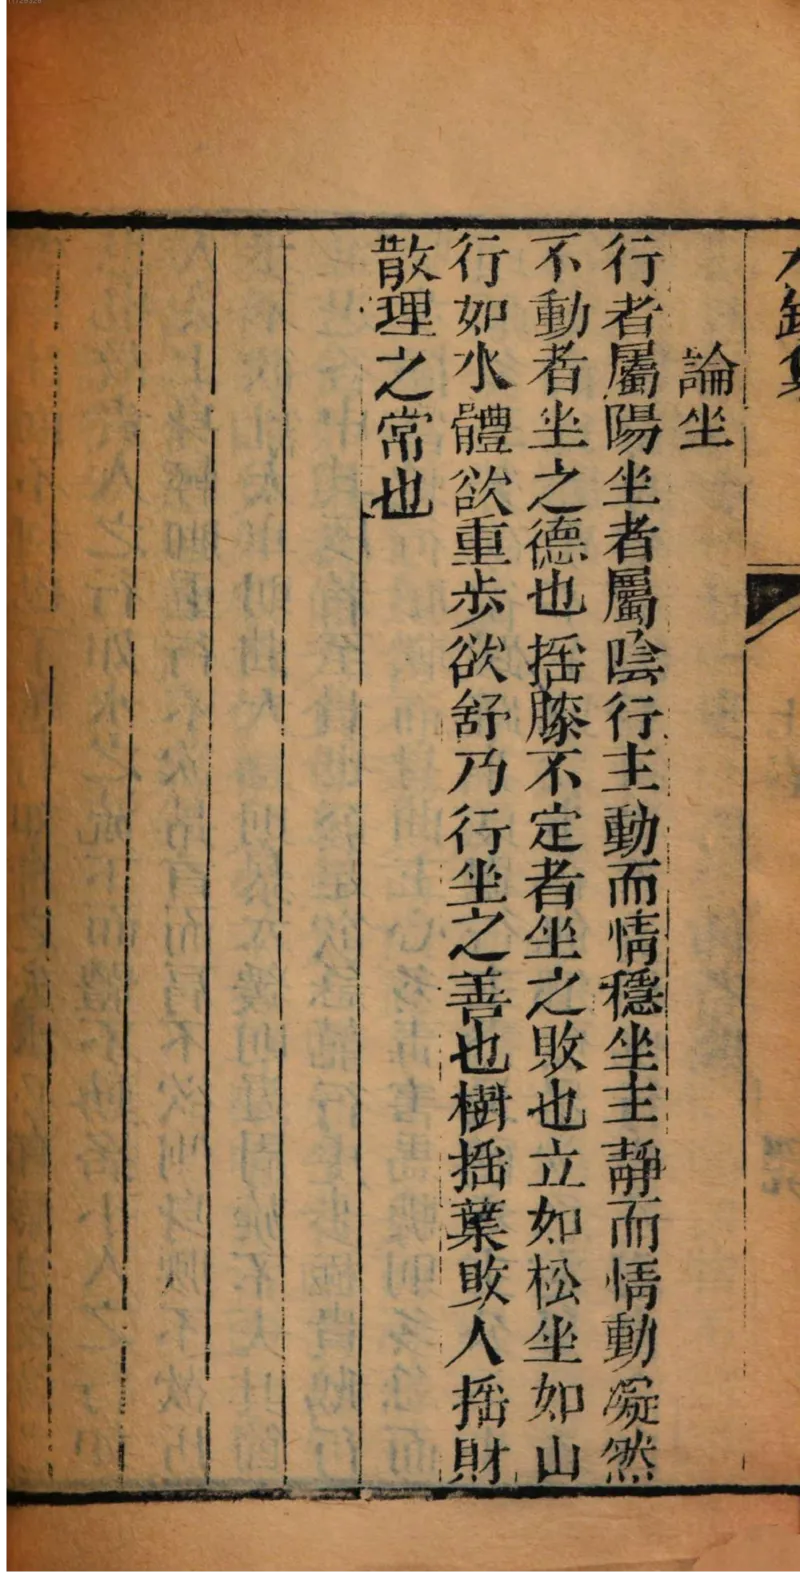 論坐
行者屬陽坐者屬陰行主動而情穩坐主靜而情動凝然
不動者坐之德也搖膝不定者坐之敗也立如松坐如山
行如水體欲重步欲舒乃行坐之善也樹搖葉敗人搖財
散理之常也